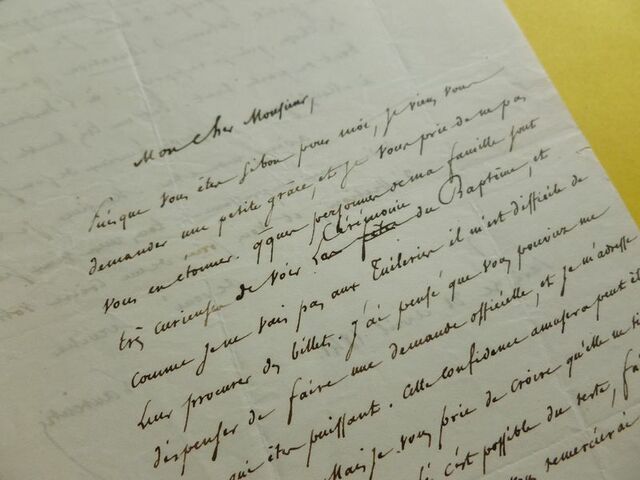 Mon cher Monsieur,
Puisque vous êtes si bon pour moi, je viens vous
demander une petite grâce, et je vous prie de ne pas
vous en étonner. qques personnes de ma famille sont
très curieuses de voir la fête Cérémonie du Baptême, et
comme je ne vais pas aux Tuileries il m'est difficile de
leur procurer des billets. J'ai pensé que vous pouviez me
dispenser de faire une demande officielle, et je m'adresse
qui êtes puissant. Cette confidence amusera peut êt
Mais je vous prie de croire qu'elle ne
c'est possible du reste,
remercierai